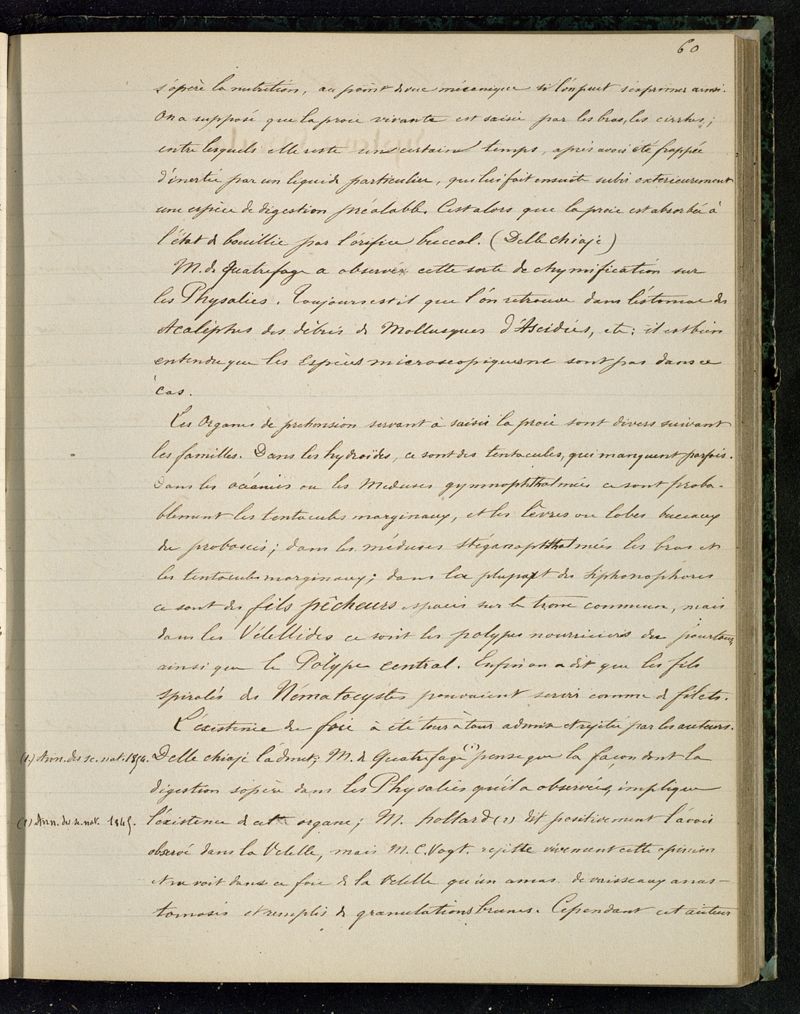 60
s'opère la nutrition, au point de vue mécanique si l'on peut s'exprimer ainsi.
On a supposé que la proie vivante est saisie par les bras, les cirrhes,
entre lesquels elle reste un certain temps, après avoir été frappée
d'inertie par un liquide particulier, qui lui fait ensuite subir extérieurement
une espèce de digestion préalable. C'est alors que la proie est absorbée à
l'état de bouillie par l'orifice buccal. (Delle chiaje)
M. de Quatrefage a observé cette sorte de chymification sur
les Physalies. Toujours est il que l'on retrouve dans l'estomac des
Acalèphes des débris de Mollusques d'Ascidies, etc: il est bien
entendu que les Espèces microscopiques ne sont pas dans ce
cas.
Les Organes de préhension servant à saisir la proie sont divers suivant
les familles. Dans les hydroïdes, ce sont des tentacules, qui manquent parfois.
Dans les océanies ou les Meduses gymnophthalmées ce sont proba-
blement les tentacules marginaux, et les lèvres ou lobes buccaux
du proboscis; dans les méduses stéganophthalmées les bras et
les tentacules marginaux; dans la plupart des siphonophores
ce sont des fils pêcheurs espacés sur le tronc commun, mais
dans les Vélellides ce sont les polypes nourriciers du pourtour,
ainsi que le Polype central. Enfin on a dit que les fils
spiralés des Nématocystes pouvaient servir comme de filets.
L'existence du foie a été tour à tour admise et rejetée par les auteurs.
(1) Ann. des sc. nat. 1854. Delle chiaje l'admet; M. de Quatrefage (1) pense que la façon dont la
digestion s'opère dans les Physalies qu'il a observées, implique
(2) Ann. des sc. nat. 1845. l'existence de cet organe; M. hollard (2) dit positivement l'avoir
observé dans la Velelle, mais M. C. Vogt. rejette vivement cette opinion
et ne voit dans ce foie de la Velelle qu'un amas de vaisseaux anas-
tomosés et remplis de granulations brunes. Cependant cet auteur